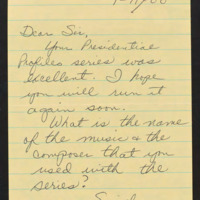 Dear Sir,
Your Presidential
Profiles series was
excellent. I hope
you will run it
again soon.
What is the name
of the music & the
composer that you
used with the
series?